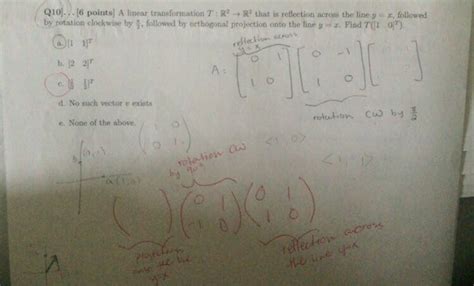 Q10]... [6 points] A linear transformation T : R² → R² that is reflection across the line y = x, followed
by rotation clockwise by π/2, followed by orthogonal projection onto the line y = x. Find T([1 0]ᵀ).
a. [1 1]ᵀ
b. [2 2]ᵀ
c.
d. No such vector v exists
e. None of the above.
reflection across
y = x
A: [0 1] [0 -1] [
[1 0] [1 0]
rotation CW by
(1 0)
(0 1)
rotation CW
by 90°
<1, 0>
<1, 1>
(1, 0)
( ) (0 1) (0 1)
(-1 0) (1 0)
projection
onto the line
y=x
reflection across
the line y=x